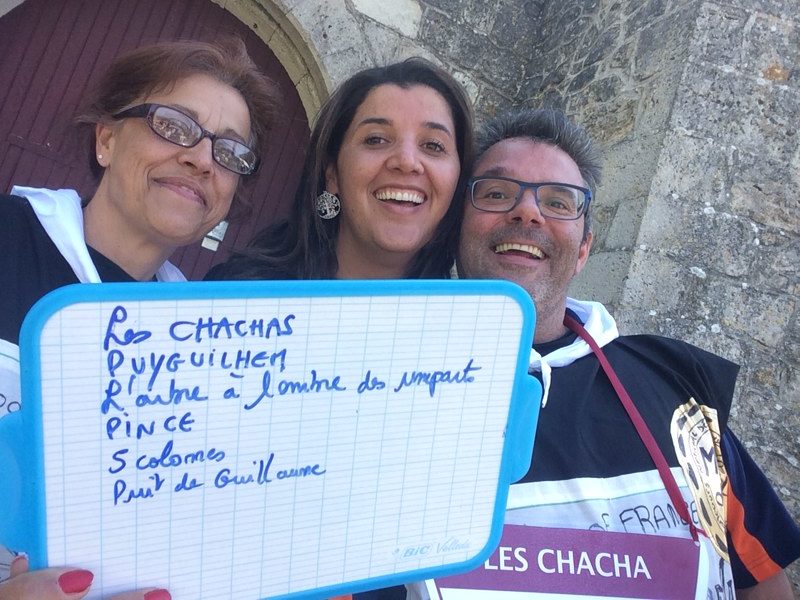 Les CHACHAS
PUYGUILHEM
L'arbre à l'ombre des remparts
PINCE
5 colonnes
Puit de Guillaume
BIC Velleda
FRANCE
LES CHACHA